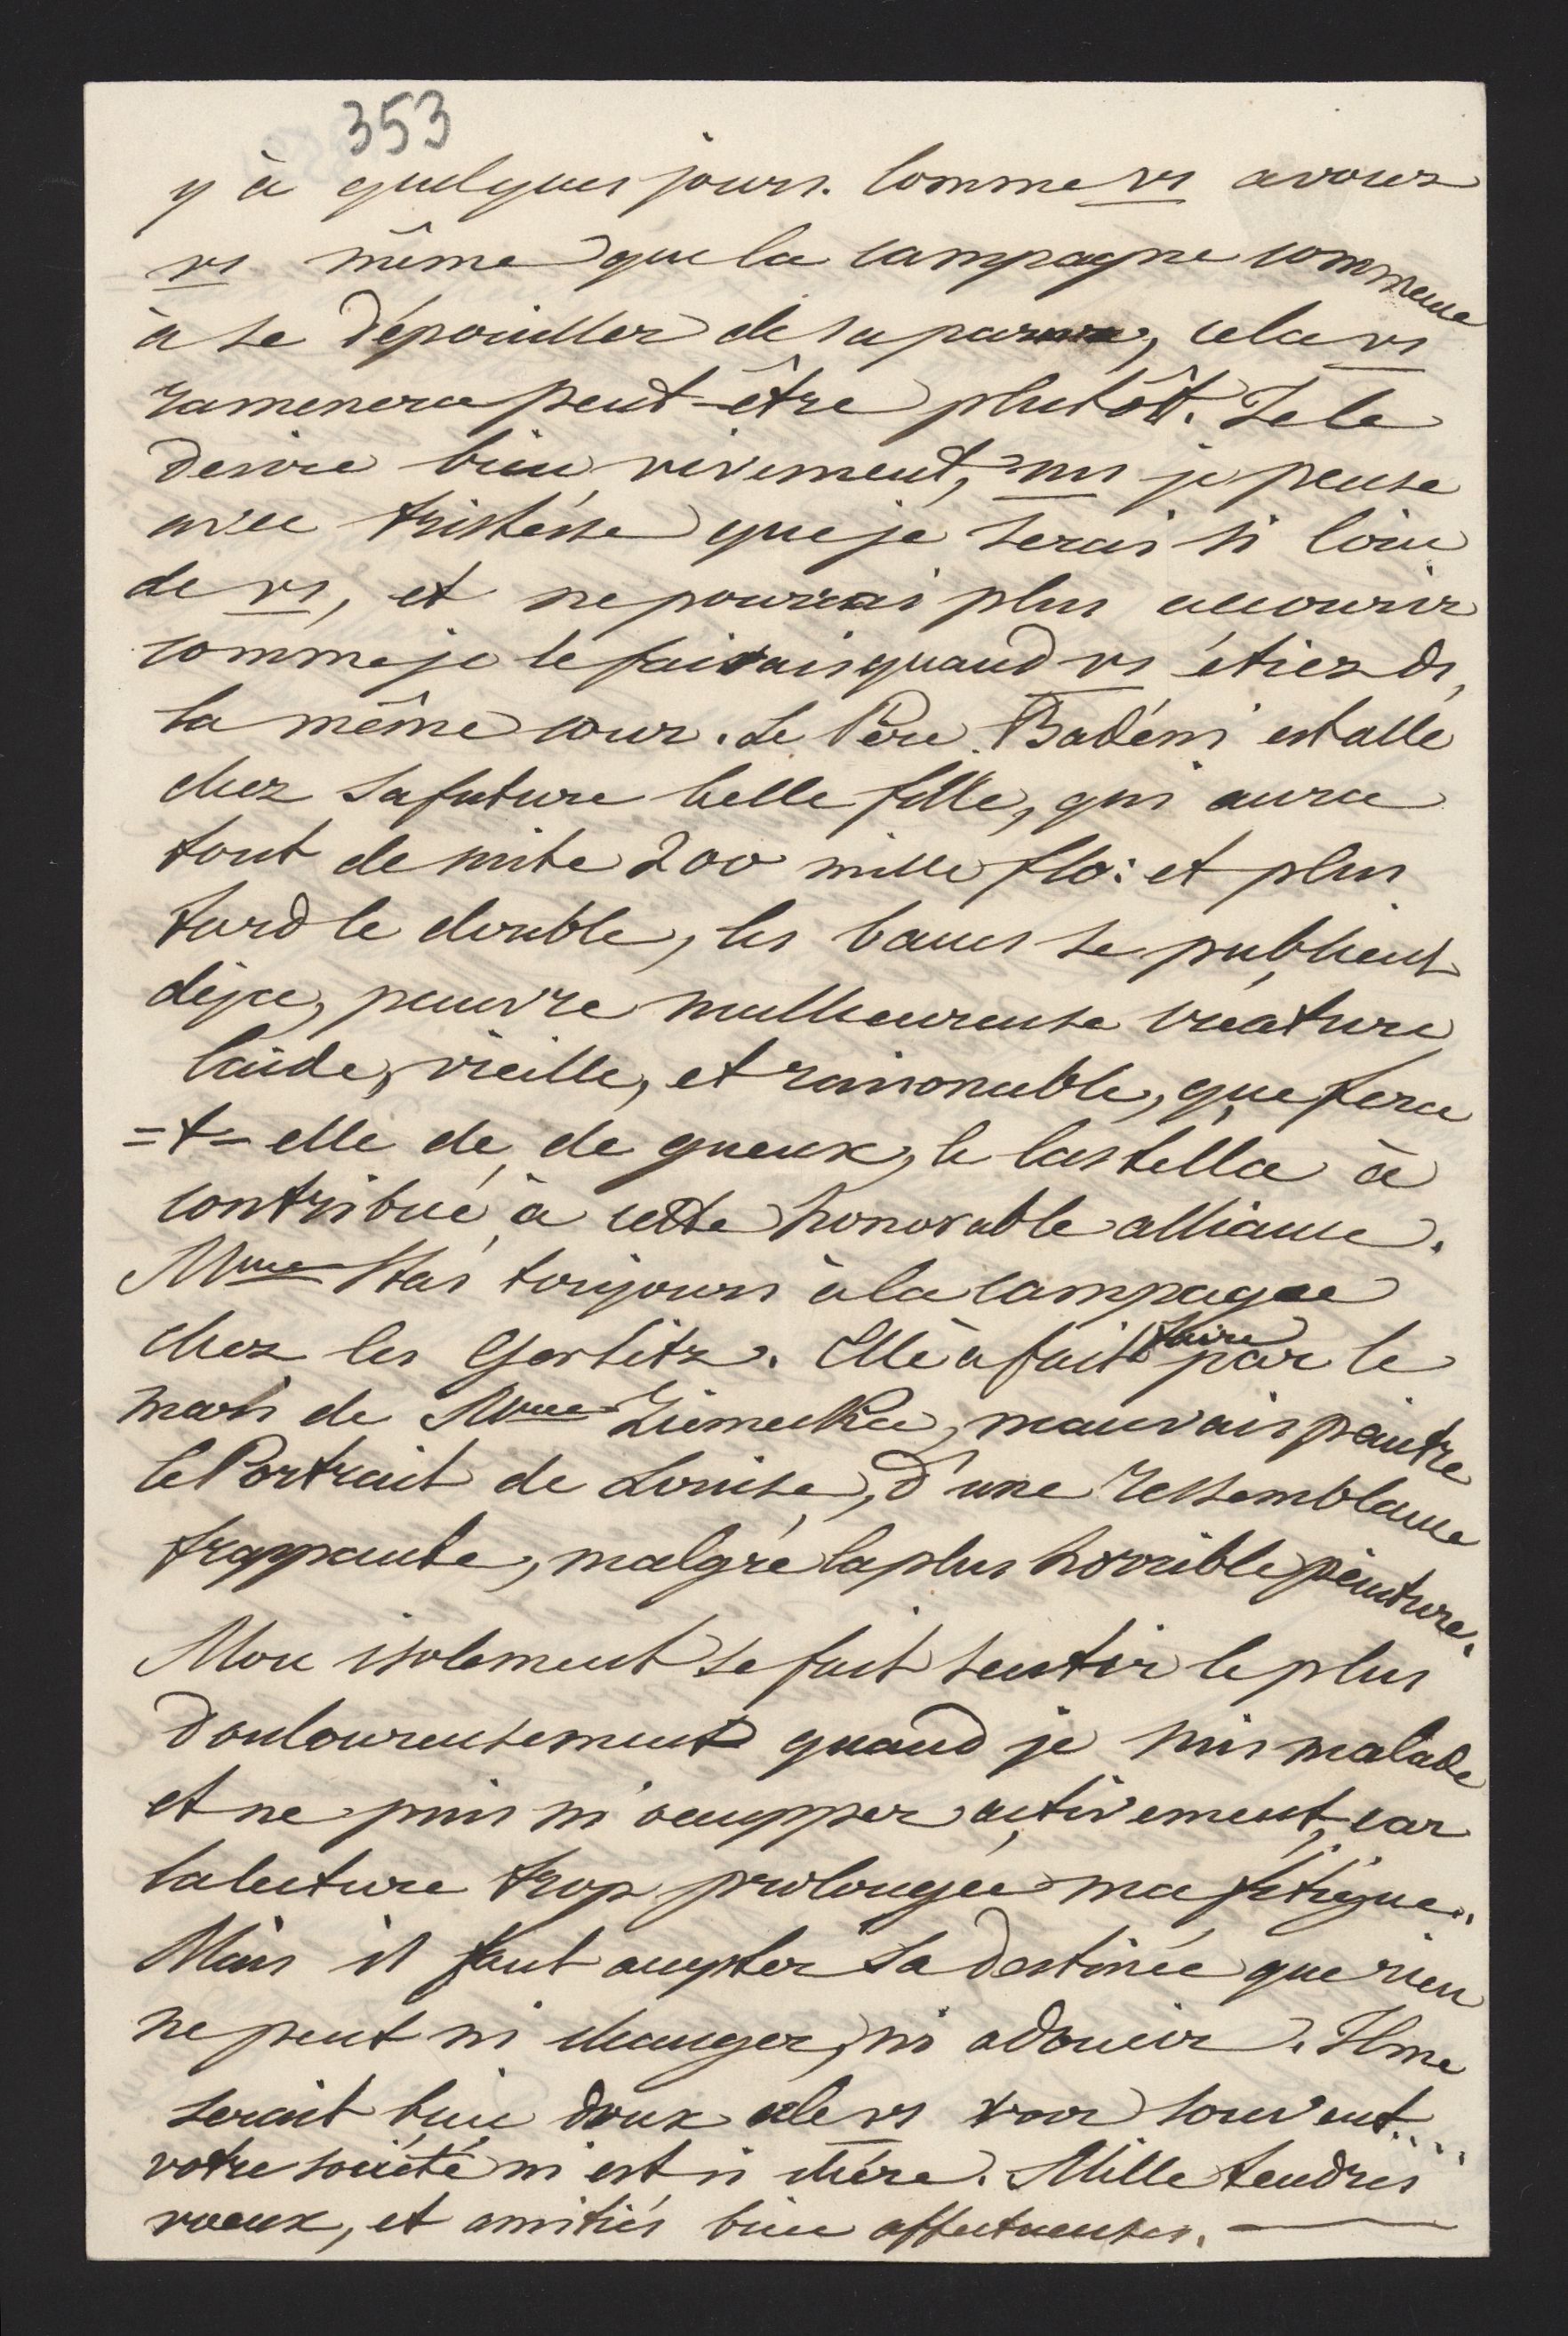 353
y à quelques jours. Comme vs avouez
vs même que la campagne commence
à se dépouiller de sa parure, cela vs
ramenera peut-être plutôt. Je le
desire bien vivement, ms je pense
avec tristesse que je serais si loin
de vs, et ne pourrai plus accourir
comme je le faisais quand vs étiez ds
la même cour. Le Père Badéni est allé
chez sa future belle fille, qui aura
tout de suite 200 mille flo: et plus
tard le double, les bancs se publient
déja, pauvre malheureuse créature
laide, vieille, et raisonable, que fera
=t= elle de de gueux, le Castella à
contribué à cette honorable alliance.
Mme Stas toujours à la campagne
chez les Gorlitz. Elle a fait faire par le
mari de Mme Ziemecka, mauvais peintre
le Portrait de Louise, d'une ressemblance
frappante, malgré la plus horrible peinture.
Mon isolement se fait sentir le plus
douloureusement quand je suis malade
et ne puis m'occupper activement, car
la lecture trop prolongée ma fatigue.
Mais il faut accepter sa destinée que rien
ne peut ni changer, ni adoucir. Il me
serait bien doux de vs voir souvent....
votre société m'est si chére. Mille tendres
voeux, et amitiés bien affectueuses.